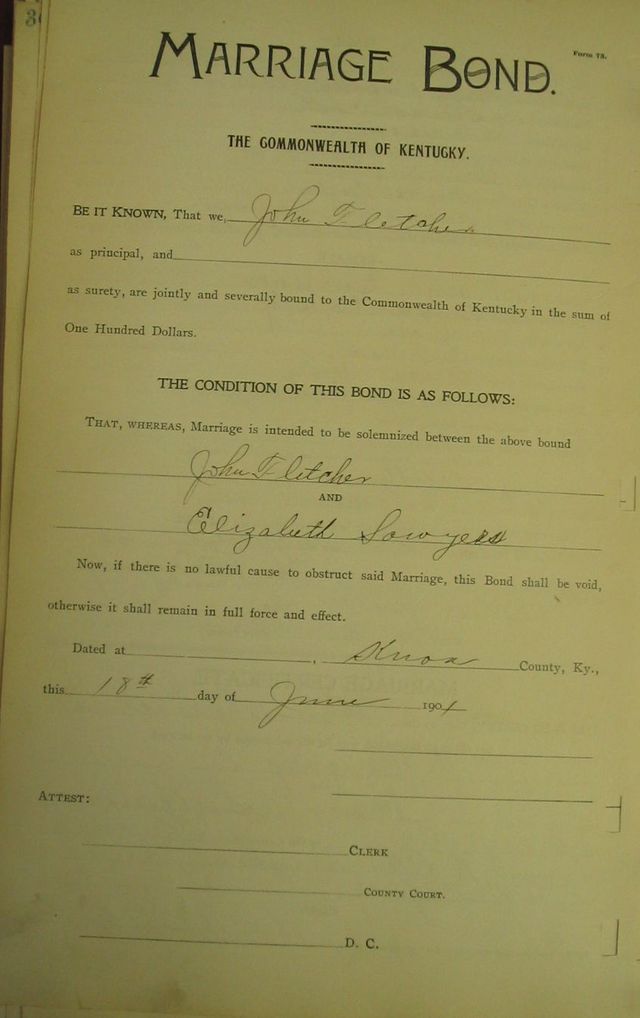 3
MARRIAGE BOND.
Form 73.
THE COMMONWEALTH OF KENTUCKY.
BE IT KNOWN, That we, John Fletcher
as principal, and
as surety, are jointly and severally bound to the Commonwealth of Kentucky in the sum of
One Hundred Dollars.
THE CONDITION OF THIS BOND IS AS FOLLOWS:
THAT, WHEREAS, Marriage is intended to be solemnized between the above bound
John Fletcher
AND
Elizabeth Sowyers
Now, if there is no lawful cause to obstruct said Marriage, this Bond shall be void,
otherwise it shall remain in full force and effect.
Dated at , Knox County, Ky.,
this 18th day of June 1901
ATTEST:
CLERK
COUNTY COURT.
D. C.